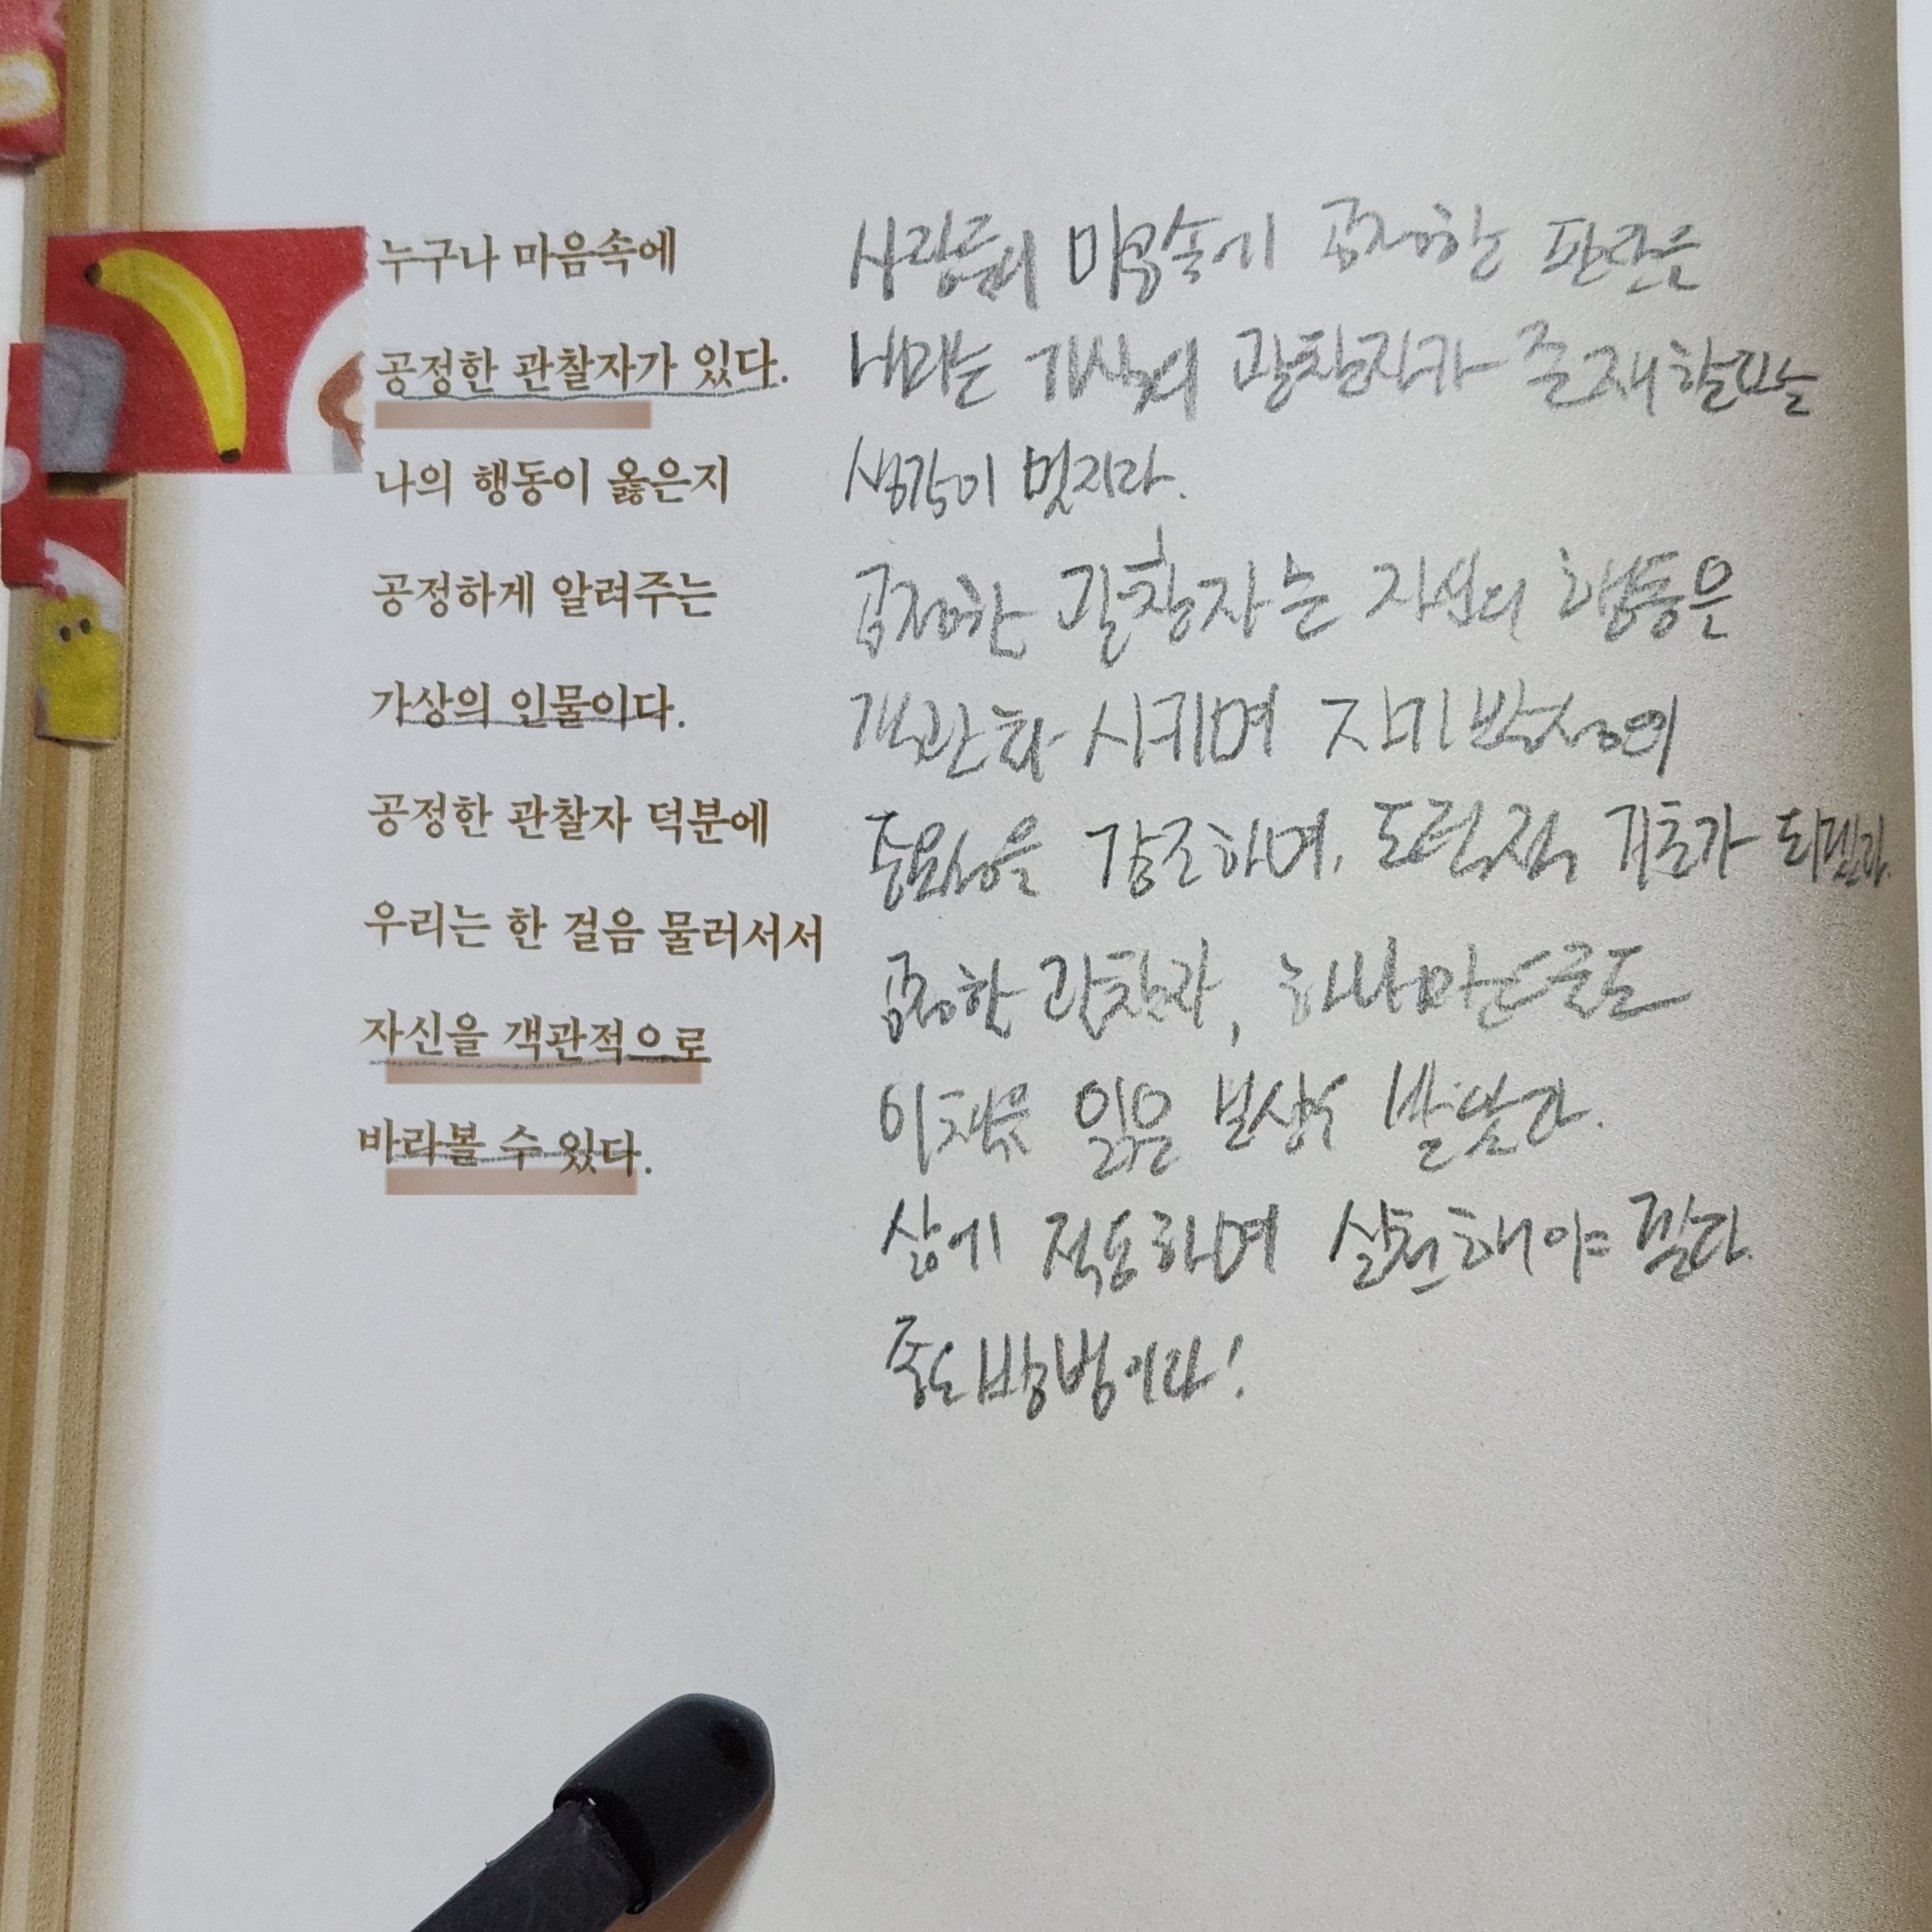 누구나 마음속에
공정한 관찰자가 있다.
나의 행동이 옳은지
공정하게 알려주는
가상의 인물이다.
공정한 관찰자 덕분에
우리는 한 걸음 물러서서
자신을 객관적으로
바라볼 수 있다.
사람들의 마음속에 공정한 판단을
내리는 가상의 관찰자가 존재한다는
생각이 멋지다.
공정한 관찰자는 자신의 행동을
객관화 시키며 자기반성의
중요성을 강조하며, 도덕적 기초가 되겠다.
공정한 관찰자, 하나만으로도
이 책을 읽은 보상을 받았다.
삶에 적용하며 실천해야 한다.
중도방법이다!